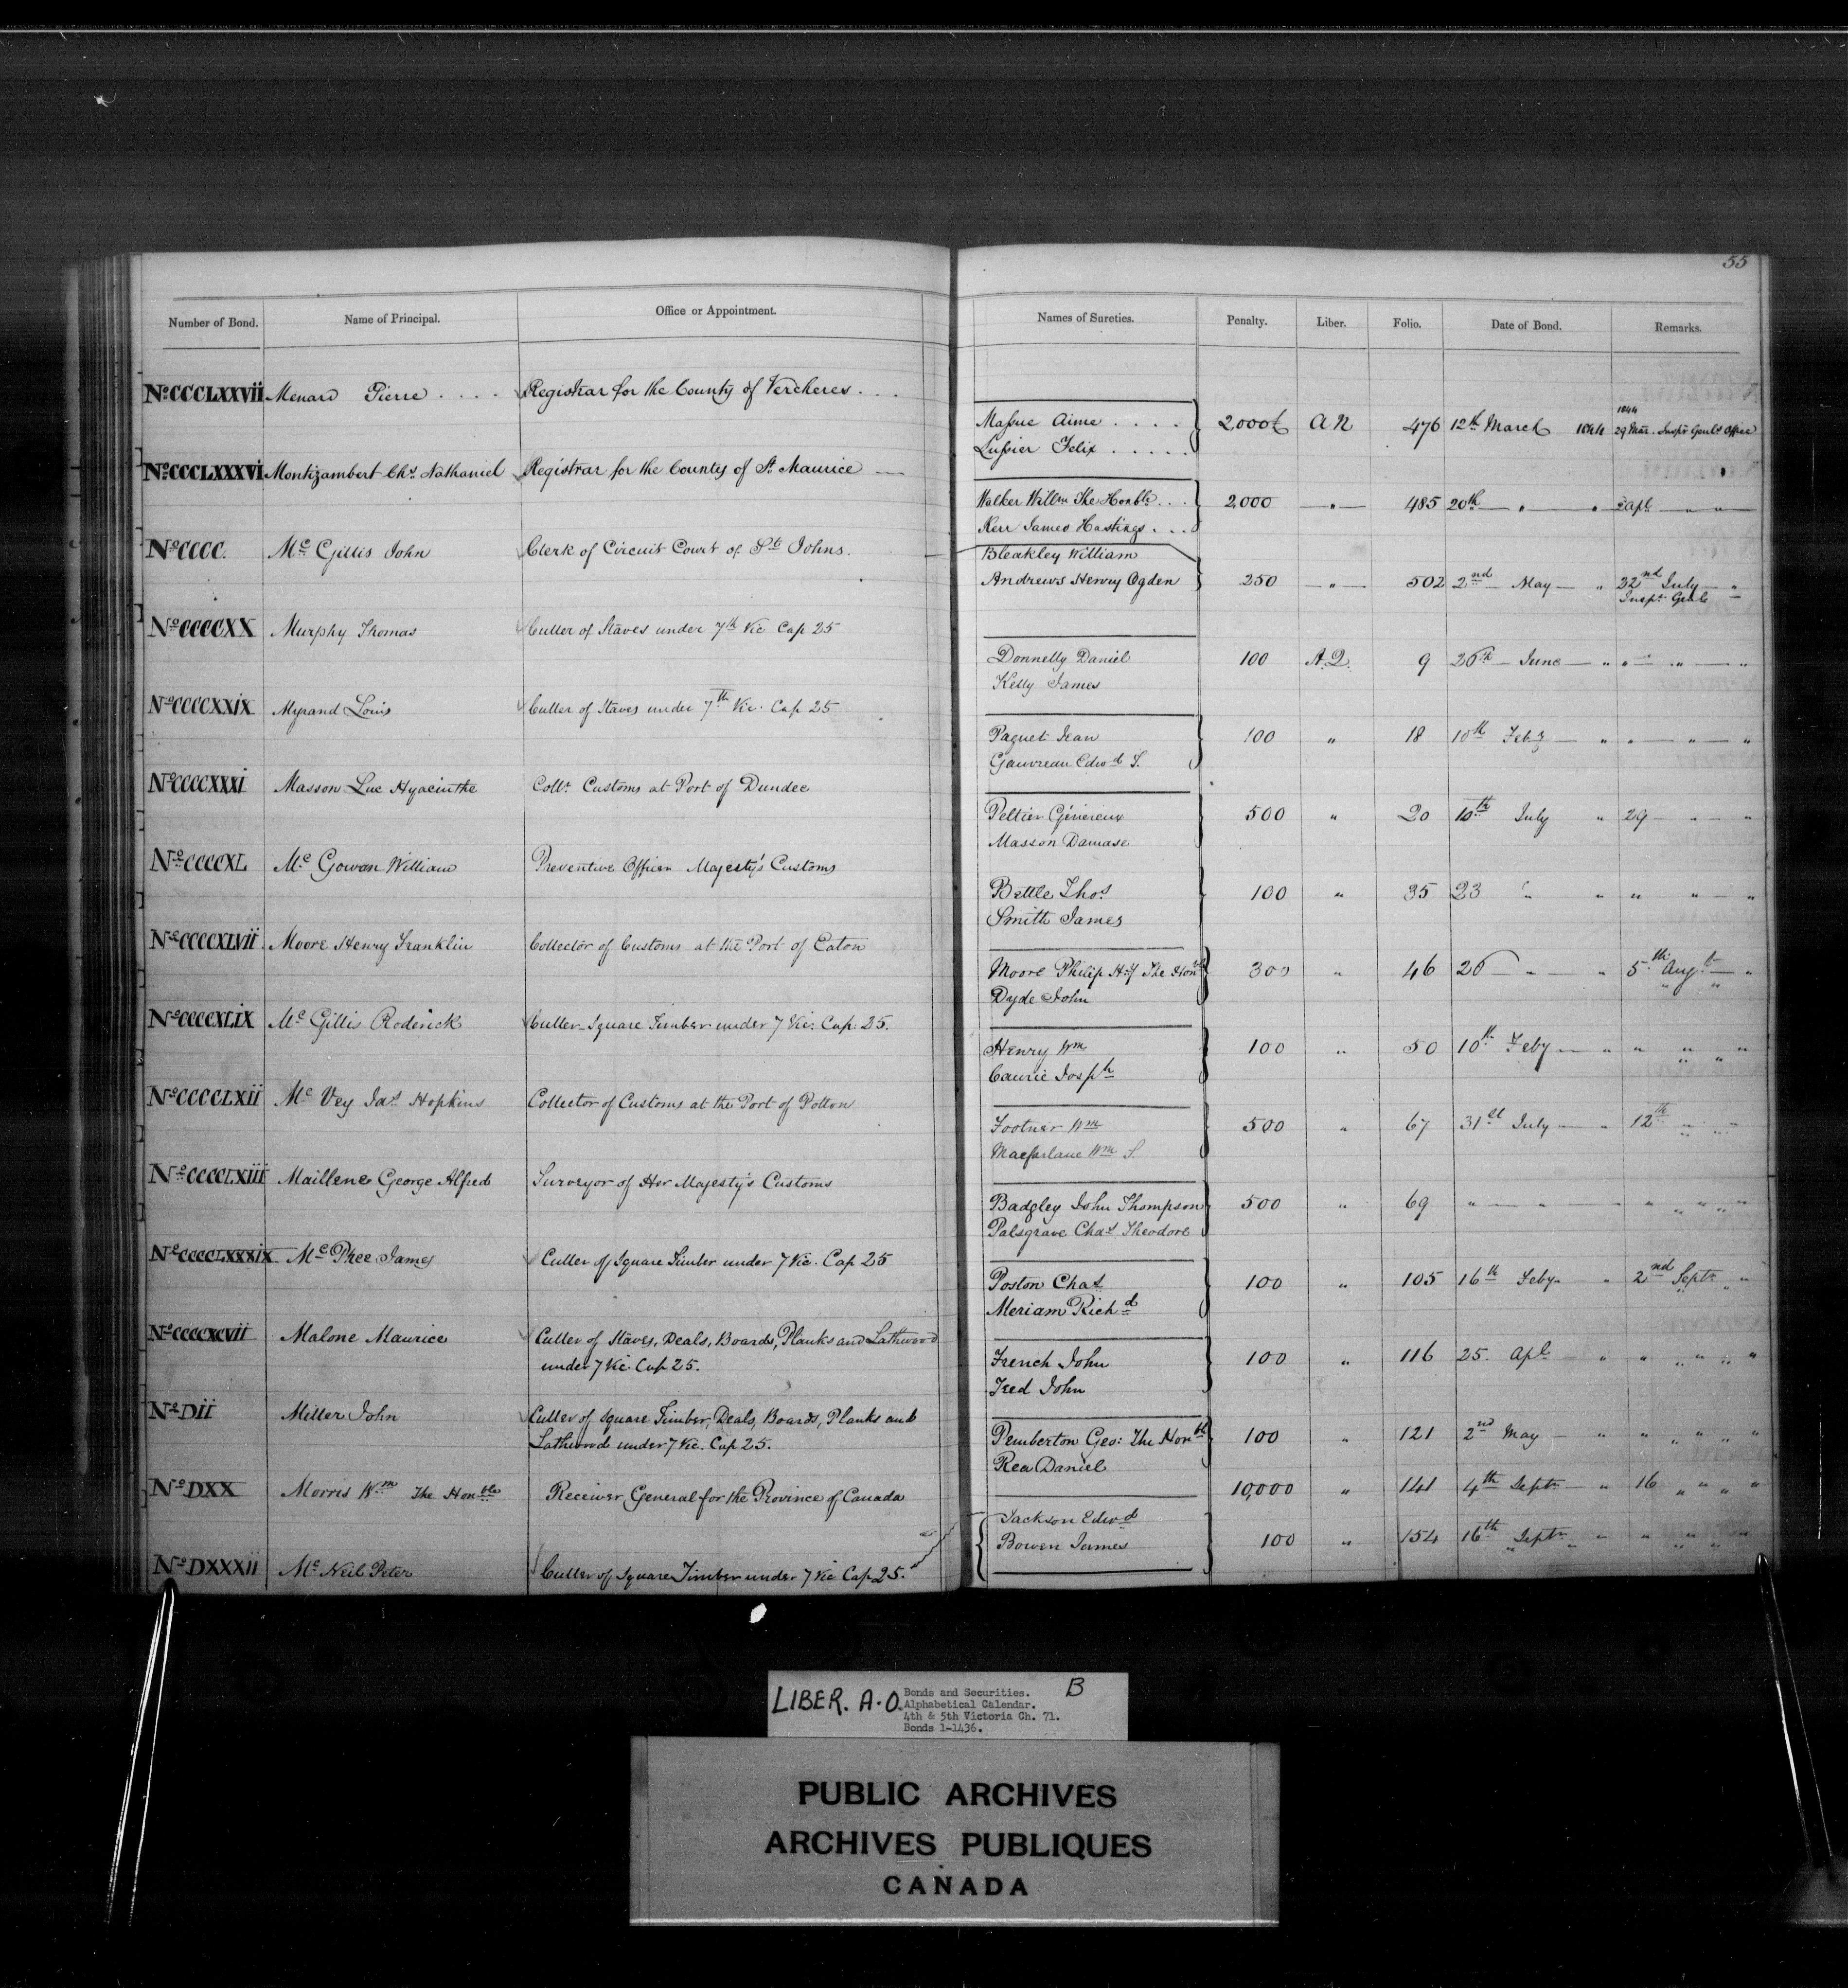 55
Number of Bond. Name of Principal. Office or Appointment. Names of Sureties. Penalty. Liber. Folio. Date of Bond. Remarks.
No CCCLXXVii Menard Pierre . . . . Registrar for the County of Vercheres . . .
Massue Aime . . . . 2,000£ A N 476 12th March 1844 1844 29 Mar. Inspr Genls Office
Lussier Felix . . . . .
No CCCLXXXVi Montizambert Chs Nathaniel Registrar for the County of St Maurice —
Walker Willm The Honble . . . 2,000 " 485 20th " " Apl " "
Kerr James Hastings . . .
No CCCC. Mc Gillis John Clerk of Circuit Court of St Johns.
Bleakley William
Andrews Henry Ogden 250 " 502 2nd May " 22nd July "
Inspr Genl
No CCCCXX Murphy Thomas Culler of Staves under 7th Vic Cap 25
Donnelly Daniel 100 A.Q. 9 26th June " " " "
Kelly James
No CCCCXXiX Myrand Louis Culler of Staves under 7th Vic. Cap 25
Paquet Jean 100 " 18 10th Feby " " " "
Gauvreau Edwd S.
No CCCCXXXi Masson Luc Hyacinthe Collr Customs at Port of Dundee
Peltier Généreux 500 " 20 10th July " 29 " "
Masson Damase
No CCCCXL Mc Gowan William Preventive Officer Majesty's Customs
Bettle Thos 100 " 35 23 " " " " "
Smith James
No CCCCXLVii Moore Henry Franklin Collector of Customs at the Port of Eaton
Moore Philip Hy The Honble 300 " 46 26 " " 5th Augt "
Dyde John " "
No CCCCXLiX Mc Gillis Roderick Culler Square Timber under 7 Vic. Cap: 25.
Henry Wm 100 " 50 10th Feby " " " " "
Caurie Josph
No CCCCLXii Mc Vey Jas Hopkins Collector of Customs at the Port of Potton
Footner Wm 500 " 67 31st July " 12th " "
Macfarlane Wm S.
No CCCCLXiii Maillene George Alfred Surveyor of Her Majesty's Customs
Badgley John Thompson 500 " 69 " " " " " "
Palsgrave Chas Theodore
No CCCCLXXXiX Mc Phee James Culler of Square Timber under 7 Vic. Cap 25
Poston Chas 100 " 105 16th Feby " 2nd Septr " "
Meriam Richd
No CCCCXCVii Malone Maurice Culler of Staves, Deals, Boards, Planks and Lathwood
under 7 Vic. Cap 25.
French John 100 " 116 25. Apl " " " " "
Teed John
No Dii Miller John Culler of Square Timber, Deals, Boards, Planks and
Lathwood under 7 Vic. Cap 25.
Pemberton Geo: The Honble 100 " 121 2nd May " " " " "
Rea Daniel
No DXX Morris Wm The Honble Receiver General for the Province of Canada
10,000 " 141 4th Septr " 16 " " "
Jackson Edwd
Bowen James 100 " 154 16th Septr " " " "
No DXXXii Mc Neil Peter Culler of Square Timber under 7 Vic Cap 25.
LIBER. A-O. Bonds and Securities. B
Alphabetical Calendar.
4th & 5th Victoria Ch. 71.
Bonds 1-1436.
PUBLIC ARCHIVES
ARCHIVES PUBLIQUES
CANADA